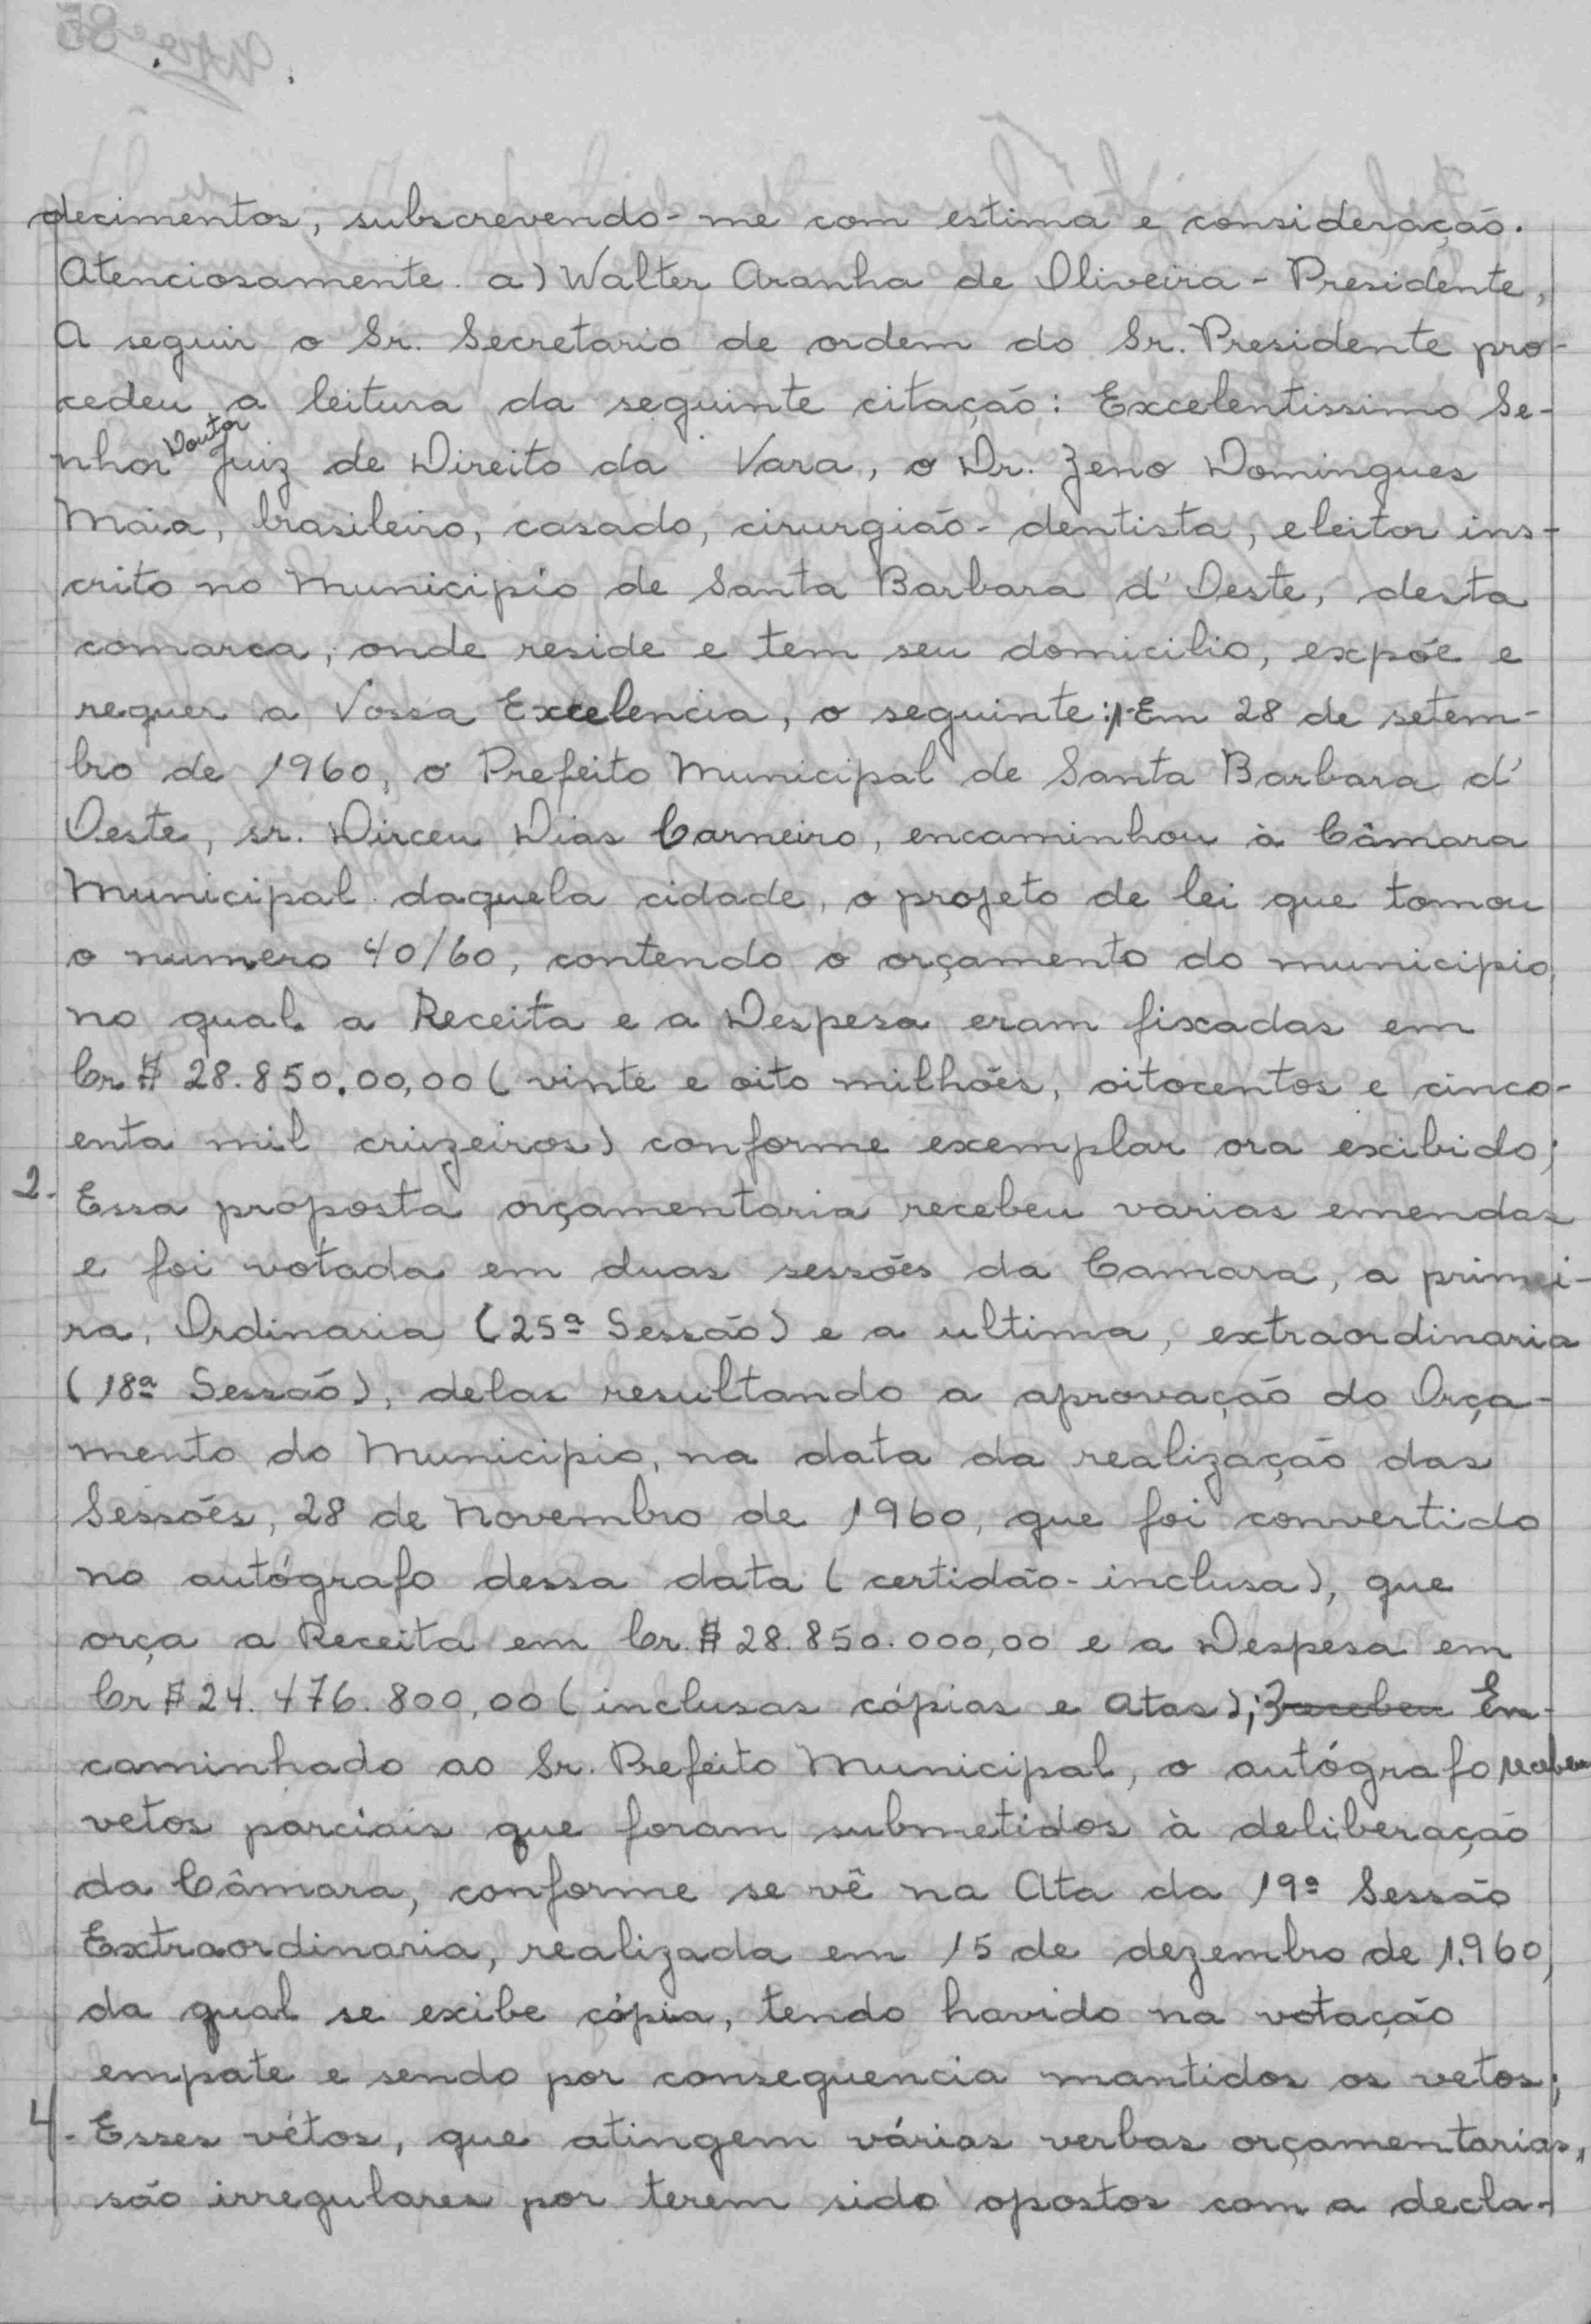 decimentos, subscrevendo-me com estima e consideração.
Atenciosamente. a) Walter Aranha de Oliveira - Presidente,
A seguir o Sr. Secretario de ordem do Sr. Presidente pro-
cedeu a leitura da seguinte citação: Excelentissimo Se-
nhor Doutor Juiz de Direito da Vara, o Dr. Zeno Domingues
Maia, brasileiro, casado, cirurgião-dentista, eleitor ins-
crito no Municipio de Santa Barbara d'Oeste, desta
comarca, onde reside e tem seu domicilio, expõe e
requer a Vossa Excelencia, o seguinte: 1-Em 28 de setem-
bro de 1960, o Prefeito Municipal de Santa Barbara d'
Oeste, sr. Dirceu Dias Carneiro, encaminhou à Câmara
Municipal daquela cidade, o projeto de lei que tomou
o numero 40/60, contendo o orçamento do municipio,
no qual a Receita e a Despesa eram fixadas em
Cr.$ 28.850.00,00 (vinte e oito milhões, oitocentos e cinco-
enta mil cruzeiros) conforme exemplar ora exibido;
2. Essa proposta orçamentaria recebeu varias emendas
e foi votada em duas sessões da Camara, a primei-
ra, Ordinaria (25ª Sessão) e a ultima, extraordinaria
(18ª Sessão), delas resultando a aprovação do Orça-
mento do Municipio, na data da realização das
Sessões, 28 de Novembro de 1960, que foi convertido
no autógrafo dessa data (certidão-inclusa), que
orça a Receita em Cr.$ 28.850.000,00 e a Despesa em
Cr $ 24.476.800,00 (inclusas cópias e Atas); 3 recebeu En-
caminhado ao Sr. Prefeito Municipal, o autógrafo recebeu
vetos parciais que foram submetidos à deliberação
da Câmara, conforme se vê na Ata da 19ª Sessão
Extraordinaria, realizada em 15 de dezembro de 1.960,
da qual se exibe cópia, tendo havido na votação
empate e sendo por consequencia mantidos os vetos;
4. Esses vétos, que atingem várias verbas orçamentarias,
são irregulares por terem sido opostos com a decla-